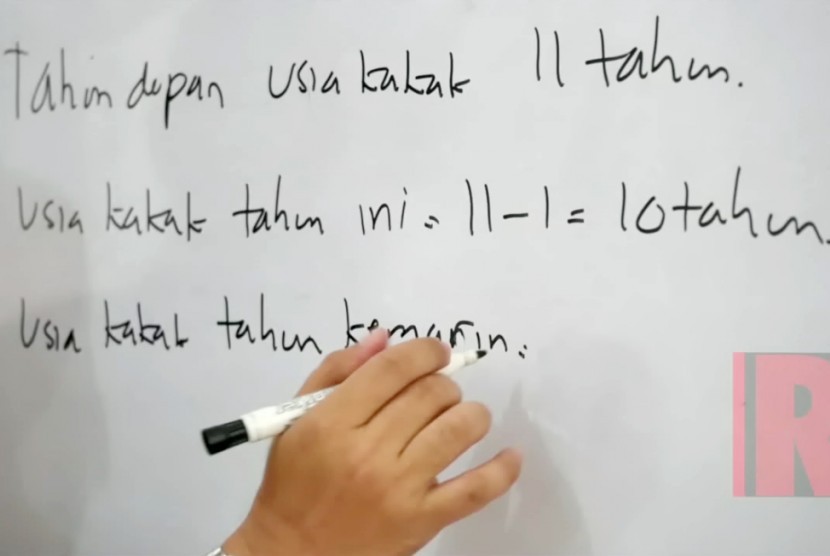 Tahun depan usia kakak 11 tahun.
Usia kakak tahun ini = 11 - 1 = 10 tahun.
Usia kakak tahun kemarin :
R